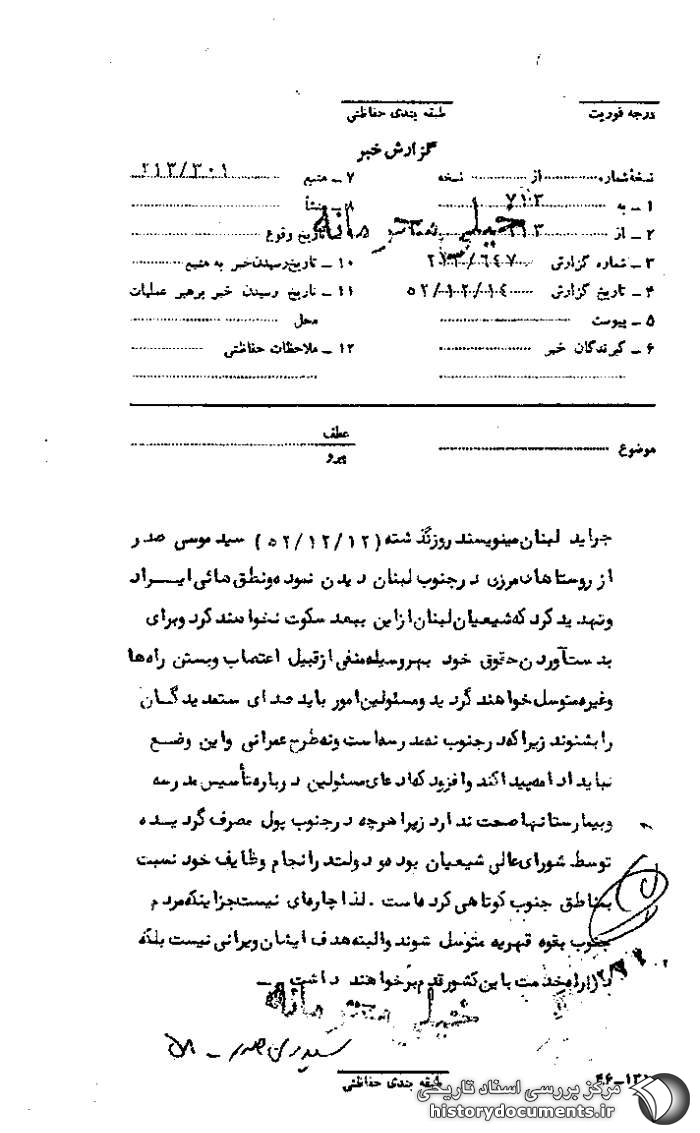 درجه فوریت
طبقه بندی حفاظتی
گزارش خبر
نسخه شماره ............ از ............ نسخه
۱ ـ به ۷۱۳
۲ ـ از ۲۱۳
۳ ـ شماره گزارش
۴ ـ تاریخ گزارش ۵۲/۱۲/۱٤
۵ ـ پیوست
۶ ـ گیرندگان خبر
۷ ـ منبع ۲۱۳/۳۰۱
۸ ـ منشأ
تاریخ وقوع
۱۰ ـ تاریخ رسیدن خبر به منبع
۱۱ ـ تاریخ رسیدن خبر برهبر عملیات
محل
۱۲ ـ ملاحظات حفاظتی
خیلی محرمانه
موضوع
عطف
پیرو
جراید لبنان مینویسند روزگذشته (۵۲/۱۲/۱۲) سید موسی صدر
از روستاهای مرزی در جنوب لبنان دیدن نموده و نطق هائی ایراد
و تهدید کرد که شیعیان لبنان از این ببعد سکوت نخواهند کرد و برای
بدست آوردن حقوق خود بهر وسیله منفی از قبیل اعتصاب و بستن راه ها
و غیره متوسل خواهند گردید و مسئولین امور باید صدای ستمدیدگان
را بشنوند زیرا که در جنوب نه مدرسه است و نه طرح عمرانی و این وضع
نباید ادامه پیدا کند و افزود که ادعای مسئولین درباره تأسیس مدرسه
و بیمارستانها صحت ندارد زیرا هرچه در جنوب پول مصرف گردیده
توسط شورای عالی شیعیان بوده و دولت در انجام وظایف خود نسبت
بمناطق جنوب کوتاهی کرده است . لذا چاره ای نیست جز اینکه مردم
جنوب بقوه قهریه متوسل شوند و البته هدف ایشان ویرانی نیست بلکه
در راه خدمت باین کشور قدم برخواهند داشت ـ
خیلی محرمانه
سید موسی صدر ـ
طبقه بندی حفاظتی
مرکز بررسی اسناد تاریخی
historydocuments.ir